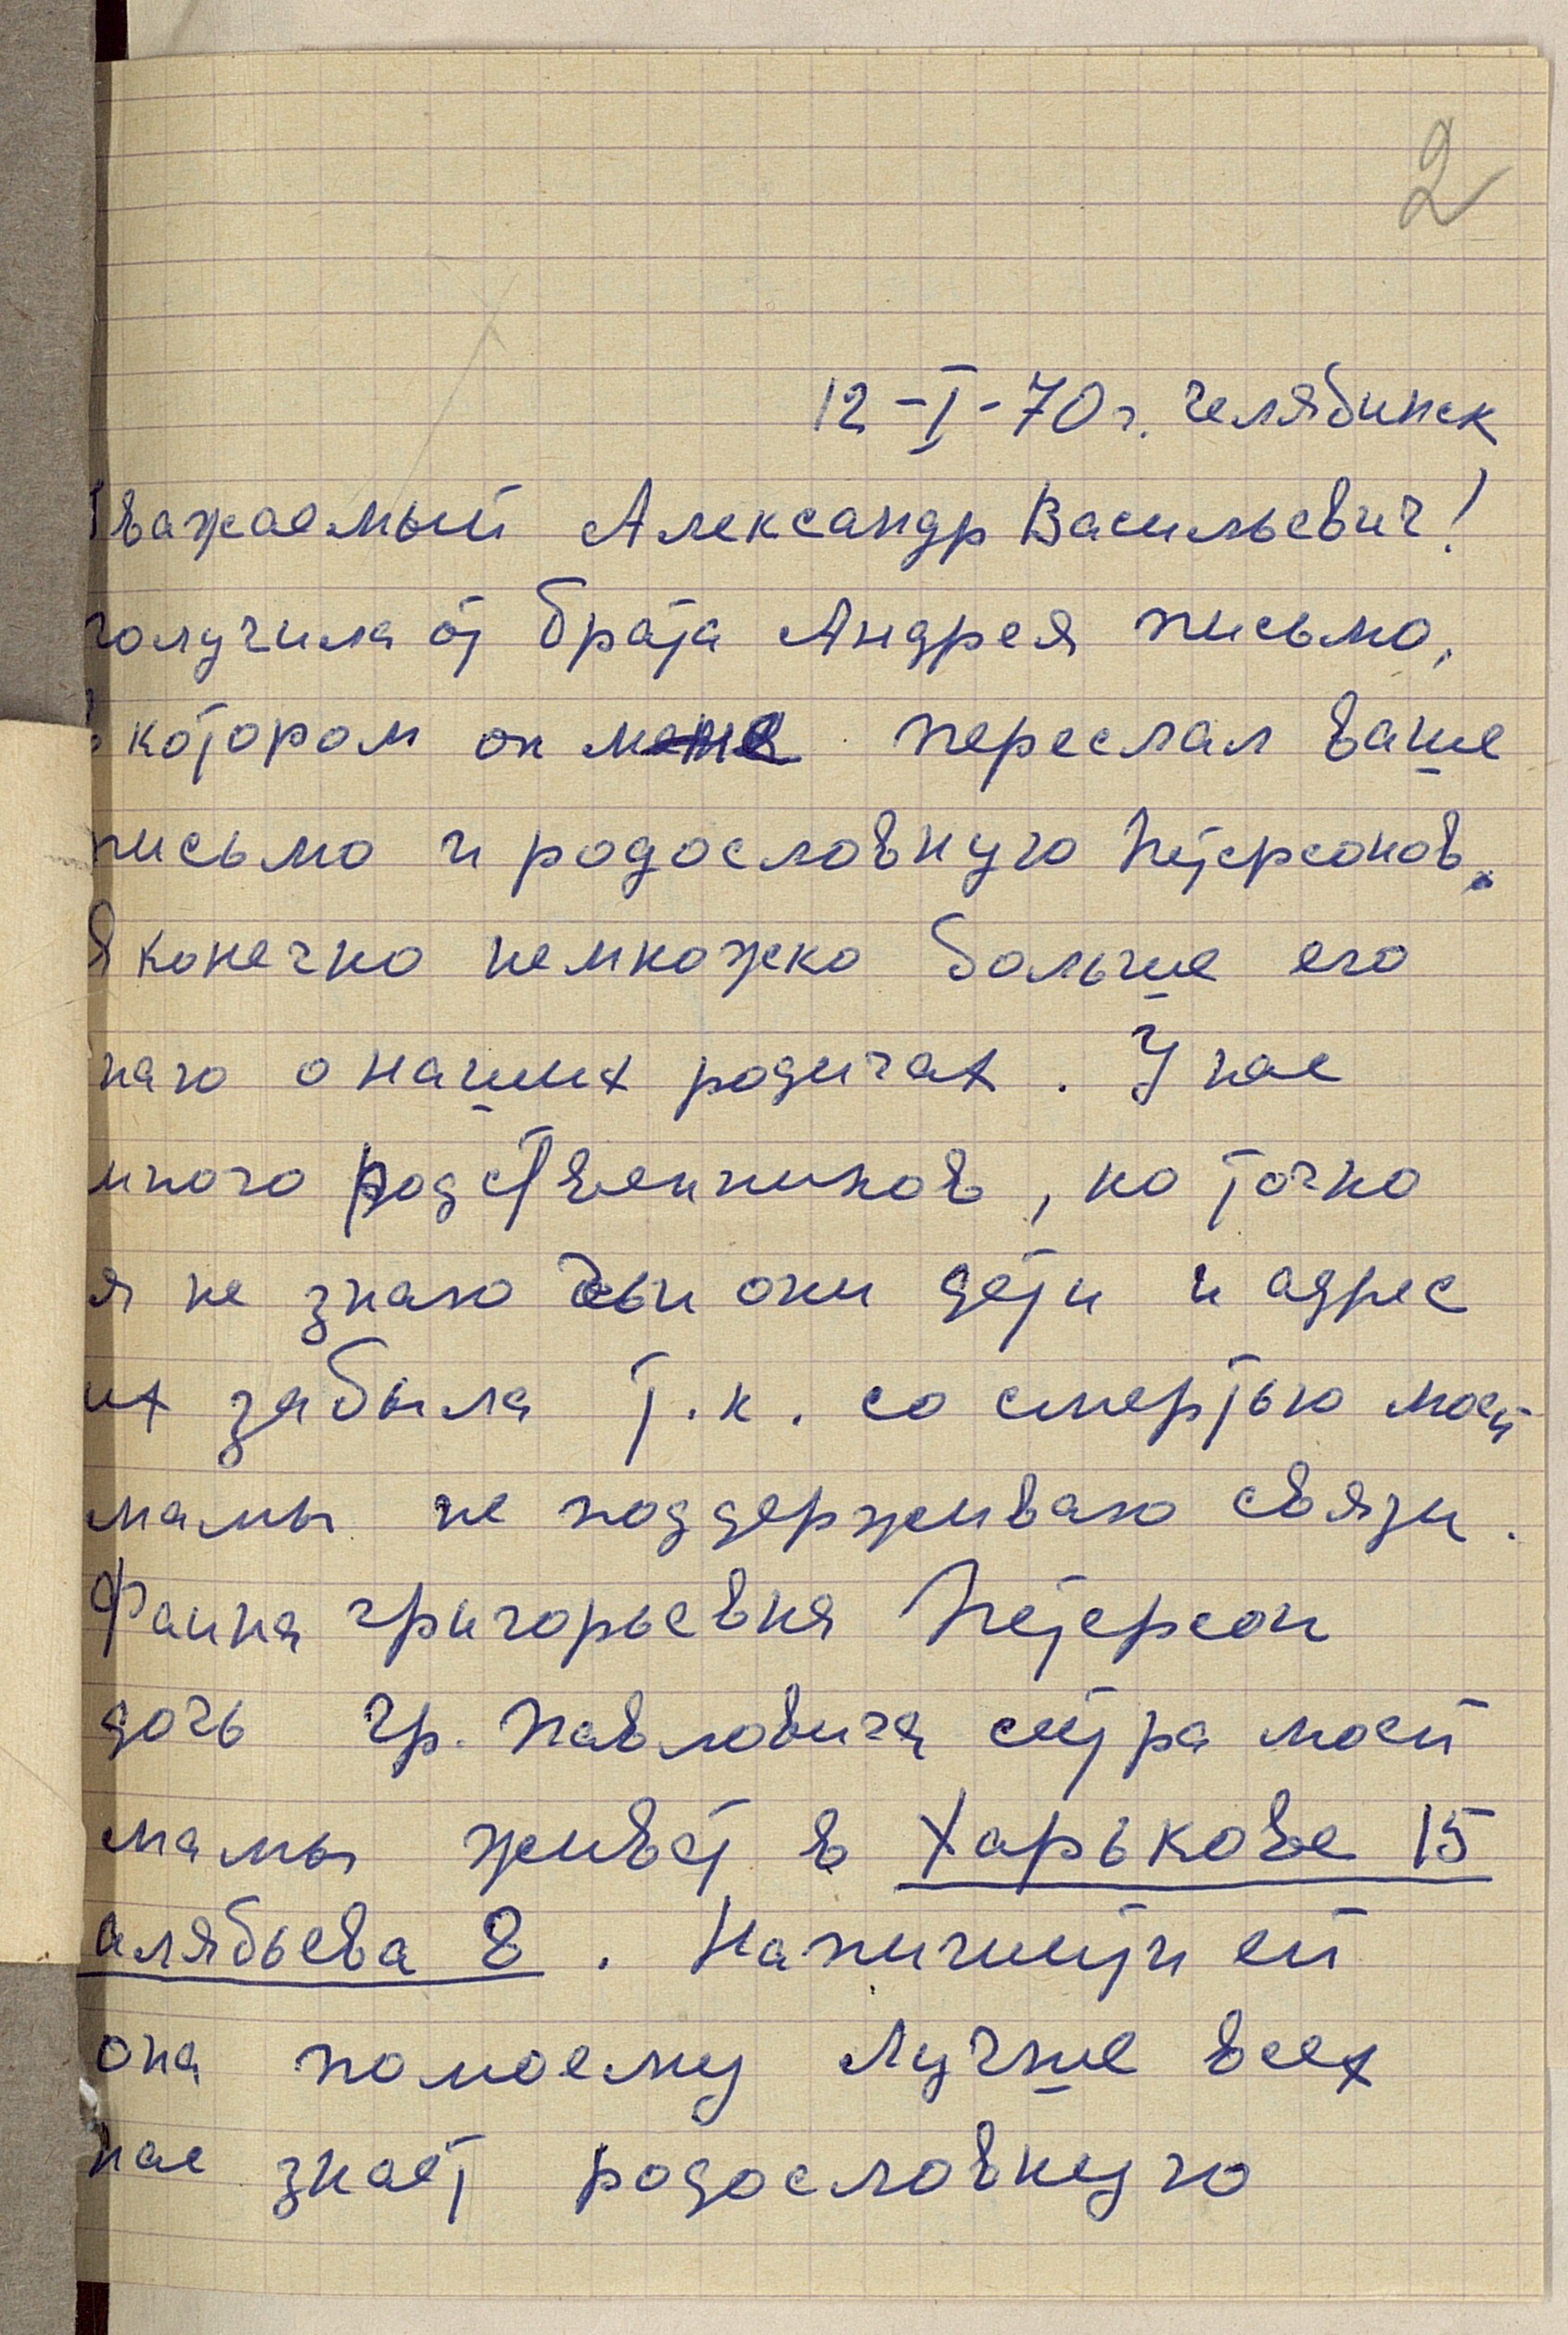 2
12-I-70г. Челябинск
Уважаемый Александр Васильевич!
получила от брата Андрея письмо,
в котором он мене переслал ваше
письмо и родословную Петерсонов.
Я конечно немножко больше его
знаю о наших родичах. У нас
много родственников, но точно
я не знаю чьи они дети и адрес
их забыла т.к. со смертью моей
мамы не поддерживаю связи.
Фаина Григорьевна Петерсон
дочь Гр. Павловича сестра моей
мамы живёт в Харькове 15
Алябьева 8. Напишити ей
она помоему лучше всех
нас знает родословную